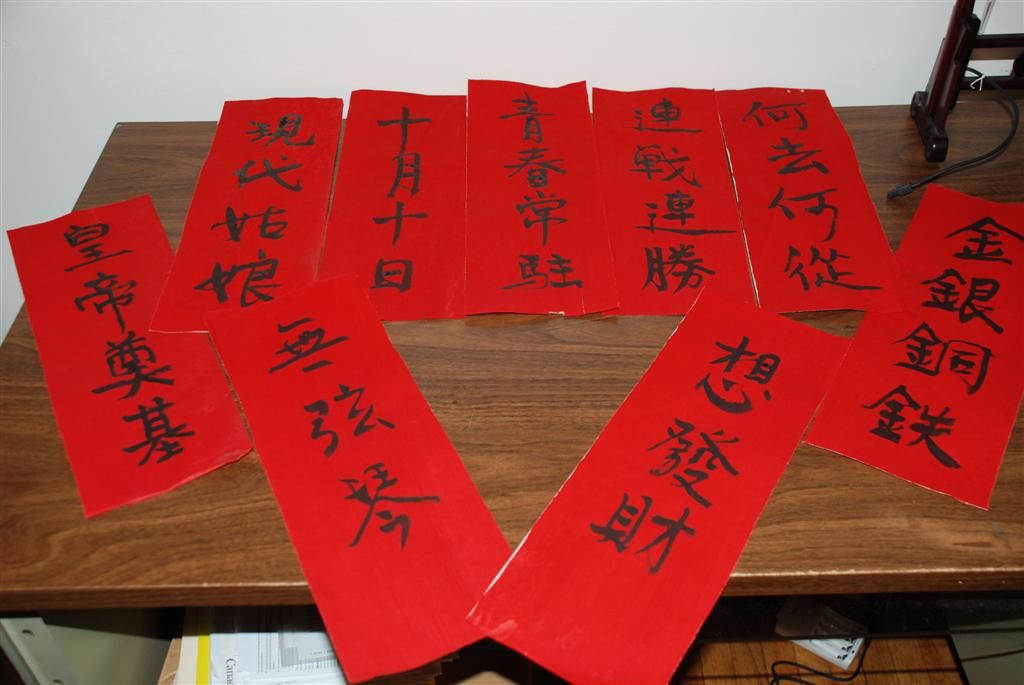 皇帝奠基
現代姑娘
十月十日
青春常駐
連戰連勝
何去何從
金銀銅鉄
無弦琴
想發財